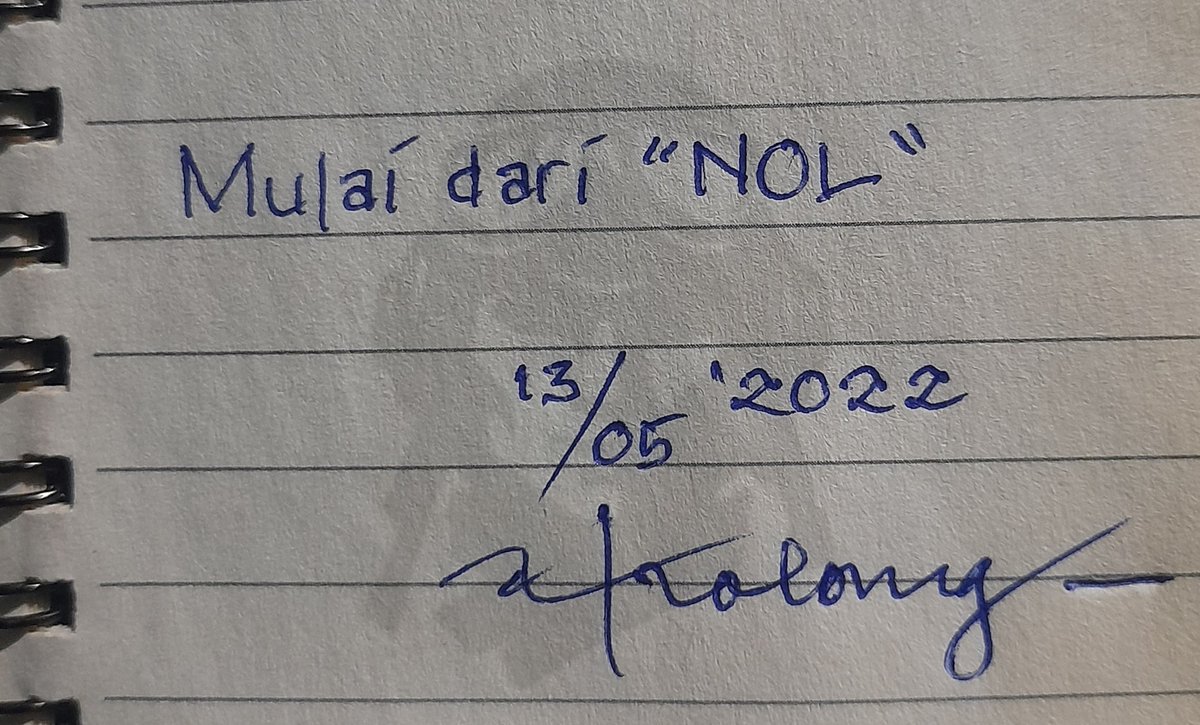 Mulai dari "NOL"
13/05 '2022